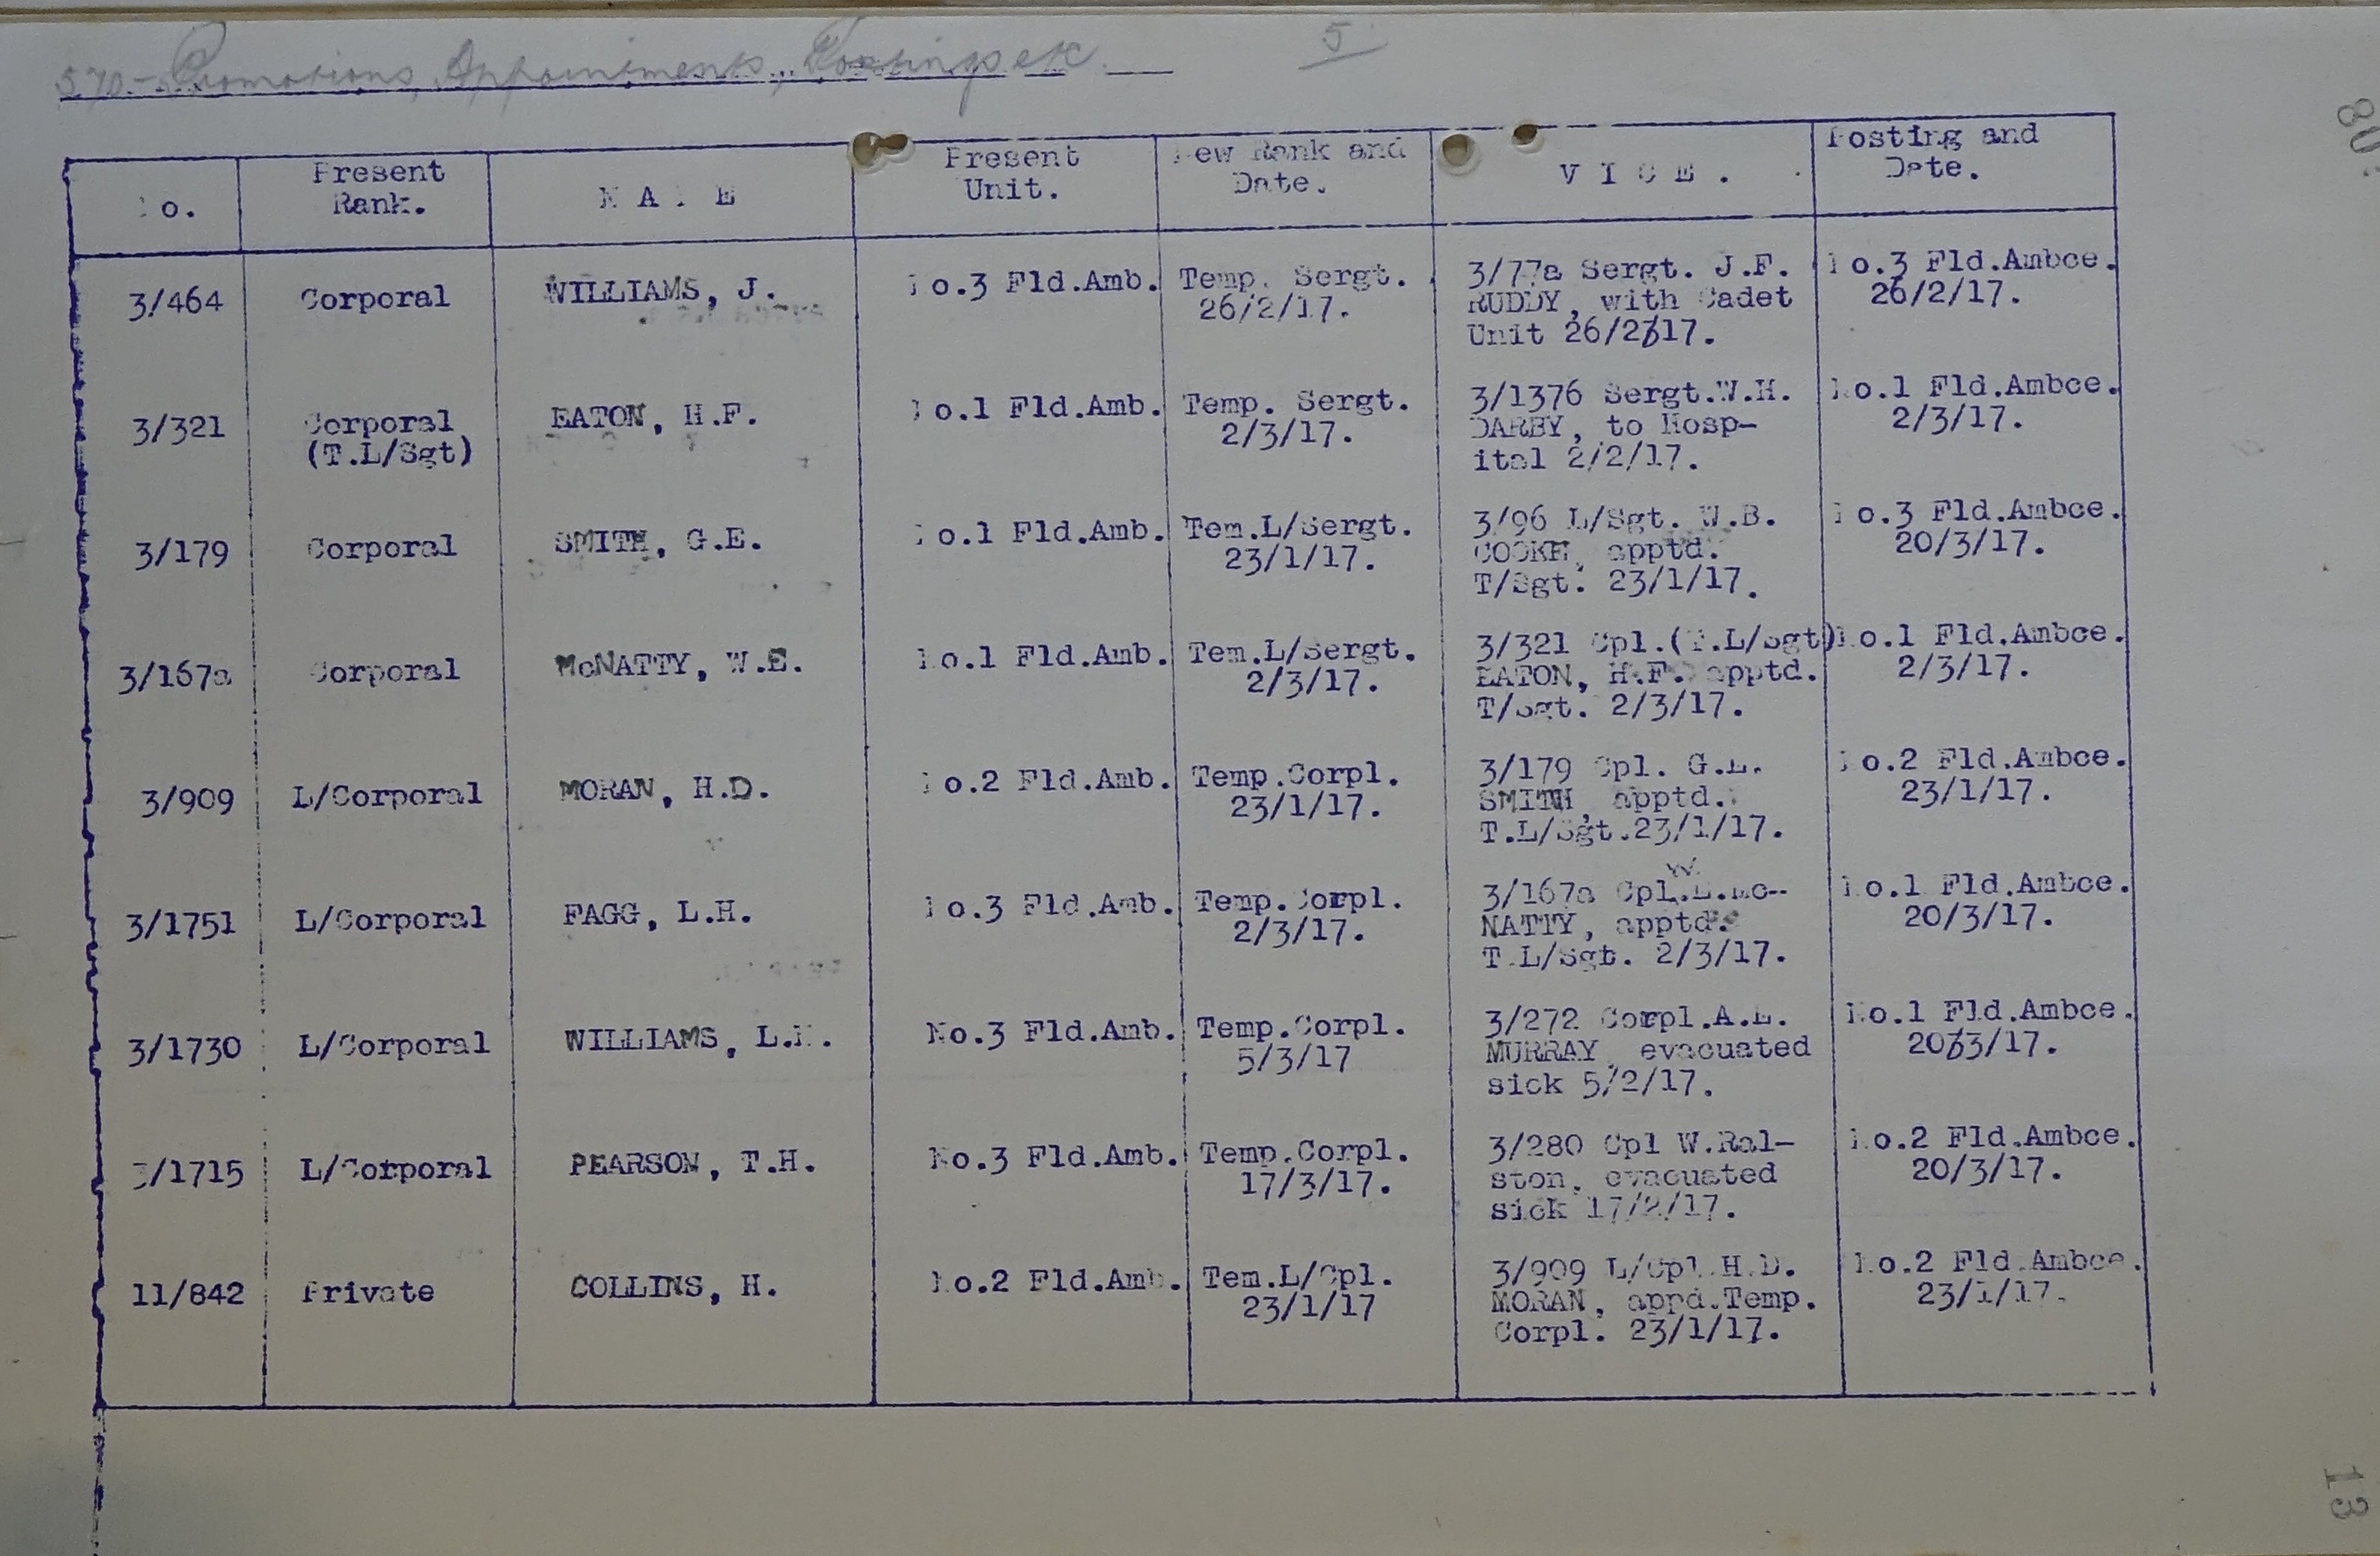 570.- Promotions, Appointments, Postings etc. 5
No. Present Rank. NAME Present Unit. New Rank and Date. VICE. Posting and Date.
3/464 Corporal WILLIAMS, J. No.3 Fld.Amb. Temp. Sergt. 3/77a Sergt. J.F. No.3 Fld.Ambce.
26/2/17. RUDDY, with Cadet 26/2/17.
Unit 26/2/17.
3/321 Corporal EATON, H.F. No.1 Fld.Amb. Temp. Sergt. 3/1376 Sergt.W.H. No.1 Fld.Ambce.
(T.L/Sgt) 2/3/17. DARBY, to Hosp- 2/3/17.
ital 2/2/17.
3/179 Corporal SMITH, G.E. No.1 Fld.Amb. Tem.L/Sergt. 3/96 L/Sgt. W.B. No.3 Fld.Ambce.
23/1/17. COOKE, apptd. 20/3/17.
T/Sgt. 23/1/17.
3/167a Corporal McNATTY, W.E. No.1 Fld.Amb. Tem.L/Sergt. 3/321 Cpl.(T.L/Sgt) No.1 Fld.Ambce.
2/3/17. EATON, H.F. apptd. 2/3/17.
T/Sgt. 2/3/17.
3/909 L/Corporal MORAN, H.D. No.2 Fld.Amb. Temp.Corpl. 3/179 Cpl. G.E. No.2 Fld.Ambce.
23/1/17. SMITH, apptd. 23/1/17.
T.L/Sgt.23/1/17.
3/1751 L/Corporal FAGG, L.H. No.3 Fld.Amb. Temp.Corpl. 3/167a Cpl.W.E.Mc- No.1 Fld.Ambce.
2/3/17. NATTY, apptd. 20/3/17.
T.L/Sgt. 2/3/17.
3/1730 L/Corporal WILLIAMS, No.3 Fld.Amb. Temp.Corpl. 3/272 Corpl.A.E. No.1 Fld.Ambce.
5/3/17 MURRAY, evacuated 20/3/17.
sick 5/2/17.
3/1715 L/Corporal PEARSON, T.H. No.3 Fld.Amb. Temp.Corpl. 3/280 Cpl W.Ral- No.2 Fld.Ambce.
17/3/17. ston, evacuated 20/3/17.
sick 17/2/17.
11/842 Private COLLINS, H. No.2 Fld.Amb. Tem.L/Cpl. 3/909 L/Cpl.H.D. No.2 Fld.Ambce.
23/1/17 MORAN, appd.Temp. 23/1/17.
Corpl. 23/1/17.
80
13